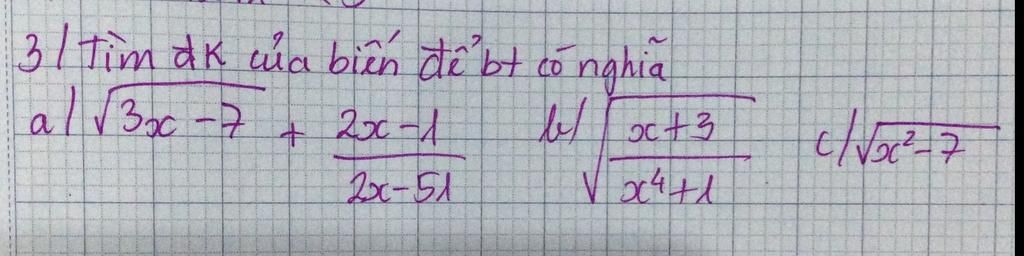 3/ Tìm đk của biến để bt có nghĩa
a/ √(3x-7) + (2x-1)/(2x-51) b/ √((x+3)/(x⁴+1)) c/ √(x²-7)